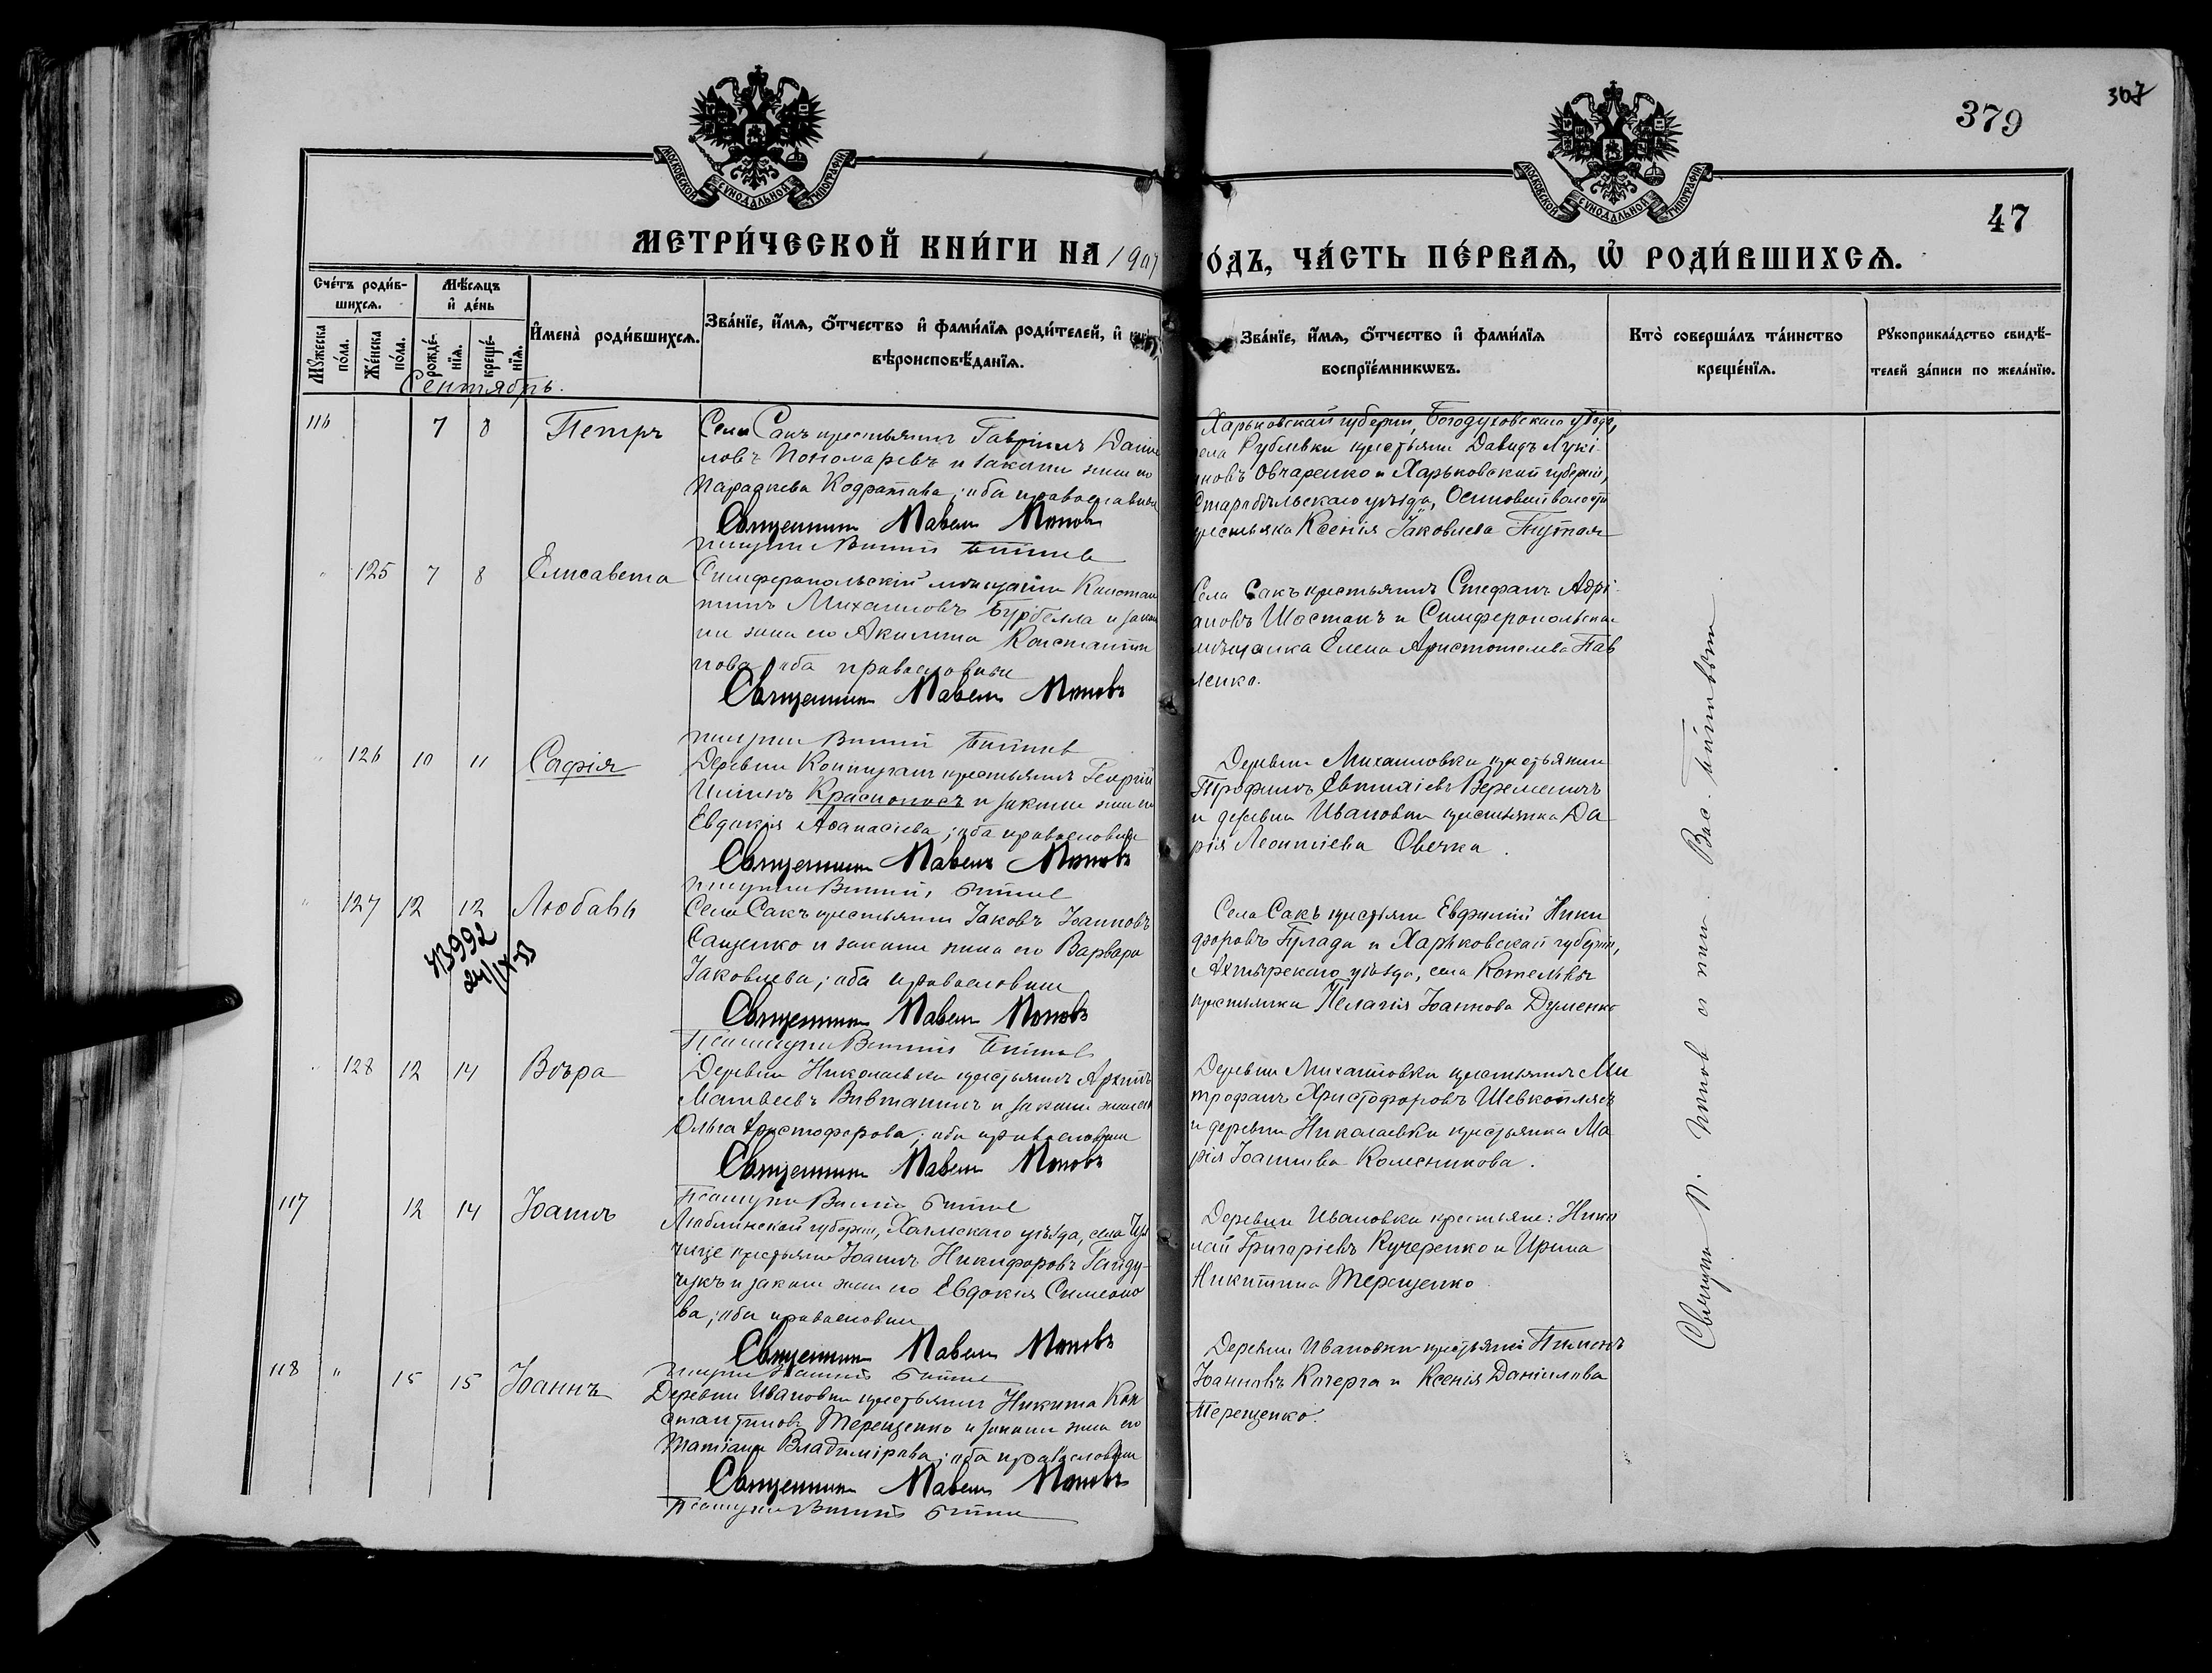 367
379
47
МОСКОВСКОЙ СѴНОДАЛЬНОЙ ТИПОГРАФІИ
МОСКОВСКОЙ СѴНОДАЛЬНОЙ ТИПОГРАФІИ
МЕТРИ́ЧЕСКОЙ КНИ́ГИ НА 1907
ГО́ДЪ, ЧА́СТЬ ПЕ́РВАѦ, Ѡ҆ РОДИ́ВШИХСѦ.
Сче́тъ роди́в-
шихсѧ.
Мꙋ́жеска по́ла.
Же́нска по́ла.
Мѣ́сѧцъ
и҆ де́нь
рожде́нїѧ.
креще́нїѧ.
И҆мена̀ роди́вшихсѧ.
Зва́нїе, и҆́мѧ, ѻ҆́тчество и҆ фами́лїѧ роди́телей, и҆
вѣроисповѣ́данїѧ.
Зва́нїе, и҆́мѧ, ѻ҆́тчество и҆ фами́лїѧ
воспрїе́мникѡвъ.
Кто̀ соверша́лъ та́инство
креще́нїѧ.
Рꙋкоприкла́дство свидѣ́-
телей за́писи по жела́нїю.
Сентябрь.
116 7 8 Петръ
Села Сакъ крестьянинъ Гавріилъ Дани
ловъ Пономаревъ и законн жена его
Параскева Кодратова; оба православные
Священникъ Павелъ Поповъ
Харьковской губерніи, Богодуховскаго уѣзда,
села Рублевки крестьянин Давидъ Лукі-
ановъ Овчаренко и Харьковской губерніи,
Старобѣльскаго уѣзда, Осиновской волости
крестьянка Ксенія Іаковлева Путая
" 125 7 8 Елисавета
Симферопольскій мѣщанинъ Констан
тинъ Михаиловъ Бурбелла и закон
ни жена его Акилина Константи
нова; оба православные
Священникъ Павелъ Поповъ
Села Сакъ крестьянинъ Стефанъ Адрі-
ановъ Шостакъ и Симферопольская
мѣщанка Елена Аристотелева Пав
ленко.
" 126 10 11 Софія
Деревни крестьянинъ Георгій
Красоносъ и законн жена его
Евдокія Аѳанасіева; оба православные
Священникъ Павелъ Поповъ
Деревни Михаиловки крестьянин
Трофимъ Евтихіевъ Веремеичъ
и деревни Ивановки крестьянка Да
рія Леонтіева Овечка.
" 127 12 12 Любовь
43992
24/IX-53
Села Сакъ крестьянин Іаковъ Іоанновъ
Саценко и законн жена его Варвара
Іаковлева; оба православные
Священникъ Павелъ Поповъ
Села Сакъ крестьянин Евфимій Ники
форовъ Гулада и Харьковской губерніи,
Ахтырскаго уѣзда, села Котельвы
крестьянка Пелагія Іоаннова Думенко
128 12 14 Вѣра
Деревни Николаевки крестьянинъ Архипъ
Матвеевъ Вивташинъ и законн жена его
Ольга Христофорова; оба православные
Священникъ Павелъ Поповъ
Деревни Михаиловки крестьянинъ Ми
трофанъ Христофоровъ Шевкоплясъ
и деревни Николаевки крестьянка Ма
рія Іоаннова Колесникова.
117 12 14 Іоаннъ
Люблинской губерніи, Холмскаго уѣзда, села
крестьянин Іоаннъ Никифоровъ Гайду-
чукъ и законн жена его Евдокія Симеоно
ва; оба православные
Священникъ Павелъ Поповъ
Деревни Ивановки крестьяне: Нико
лай Григоріевъ Кучеренко и Ирина
Никитина Терещенко
118 " 15 15 Іоаннъ
Деревни Ивановки крестьянинъ Никита Кон
стантиновъ Терещенко и законн жена его
Татіана Владимірова; оба православные
Священникъ Павелъ Поповъ
Деревни Ивановки крестьяне Пименъ
Іоанновъ Кочерга и Ксенія Даніилова
Терещенко.
Священ П. Попов с пс. Вас.